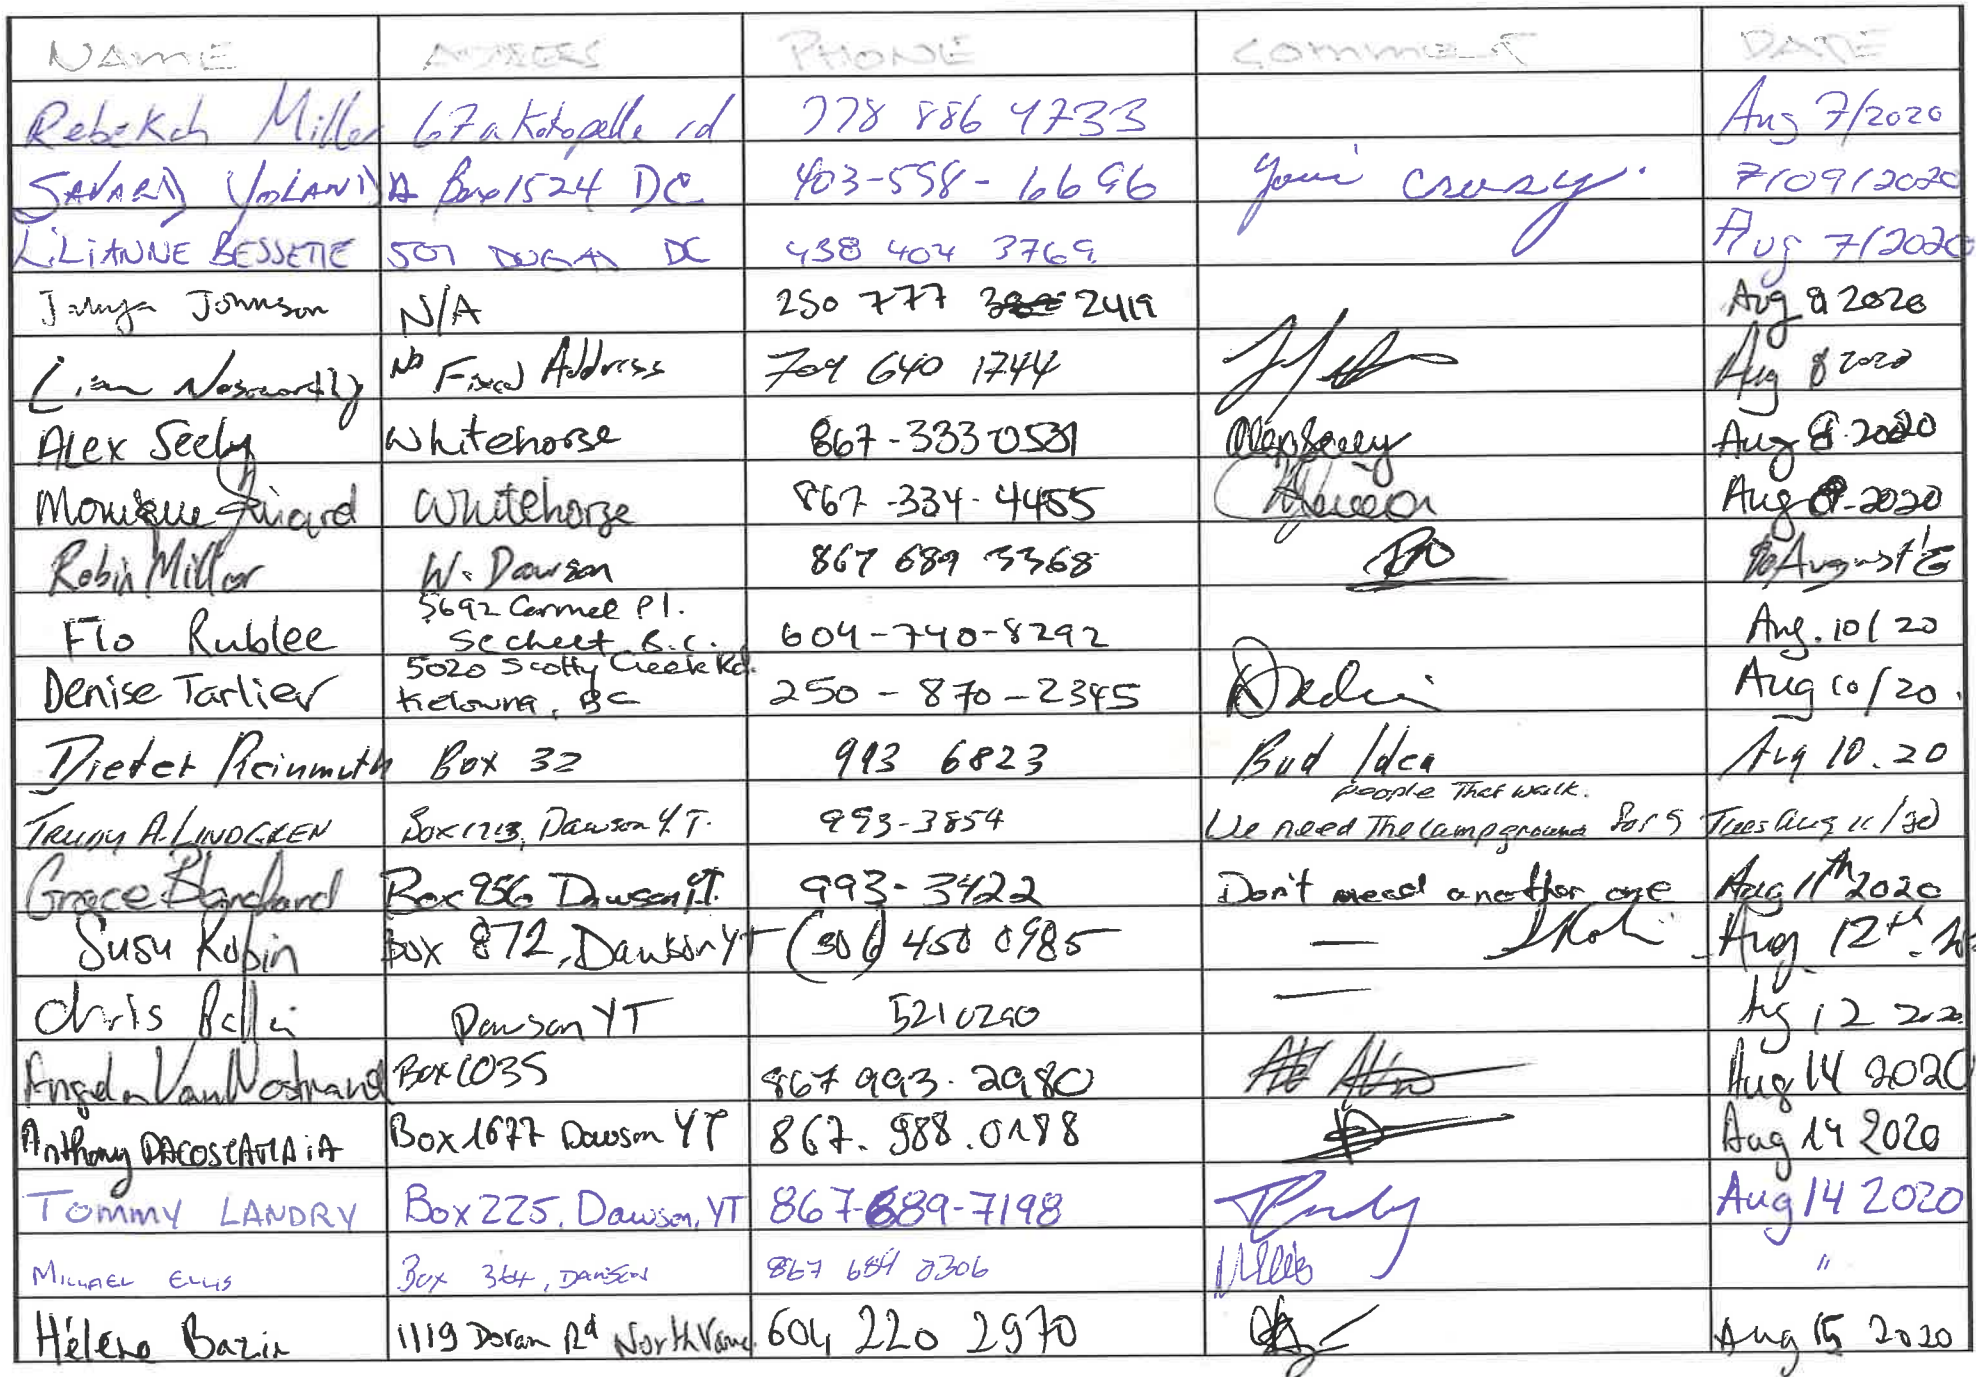 NAME ADDRESS PHONE COMMENT DATE
Rebekah Miller 67a Kokopelle rd 778 886 4733 Aug 7/2020
SAVARD YOLANDA Box 1524 DC 403-598-6696 your crazy. 7/09/2020
LILIANNE BESSETTE 507 DUGAS DC 438 404 3769 Aug 7/2020
Johnson N/A 250 777 2419 Aug 8 2020
Liam Nosworthy No Fixed Address 709 640 1744 Aug 8 2020
Alex Seely Whitehorse 867-333 0531 Alex Seely Aug 8 2020
Monique Whitehorse 867-334-4455 Aug 8-2020
Robin Miller W. Dawson 867 689 3368 August
5692 Carmel Pl.
Flo Rublee Sechelt B.C. 604-740-8292 Aug. 10/20
5020 Scotty Creek Rd.
Denise Tarlier Kelowna, BC 250-870-2345 Aug 10/20.
Dieter Reinmuth Box 32 993 6823 Bad Idea Aug 10.20
people That walk.
TRUDY A. LINDGREN Box 1213, Dawson Y.T. 993-3854 We need The Campground for Tues Aug 11/20
Grace Blanchard Box 956 Dawson Y.T. 993-3422 Don't need another one Aug 11th 2020
Susu Robin Box 872, Dawson YT (306) 450 0985 — Aug. 12th.
Chris Dawson YT 521 0290 — Ag 12 2020
Angela Van Nostrand Box 1035 867 993. 2980 Aug 14 2020
Anthony Box 1677 Dawson YT 867. 988.0188 Aug 14 2020
TOMMY LANDRY Box 225, Dawson, YT 867-689-7198 Aug 14 2020
MICHAEL ELLIS Box 364, DAWSON 867 684 0306 "
Hélène Bazin 1119 Doran Rd North Vanc. 604 220 2970 Aug 15 2020